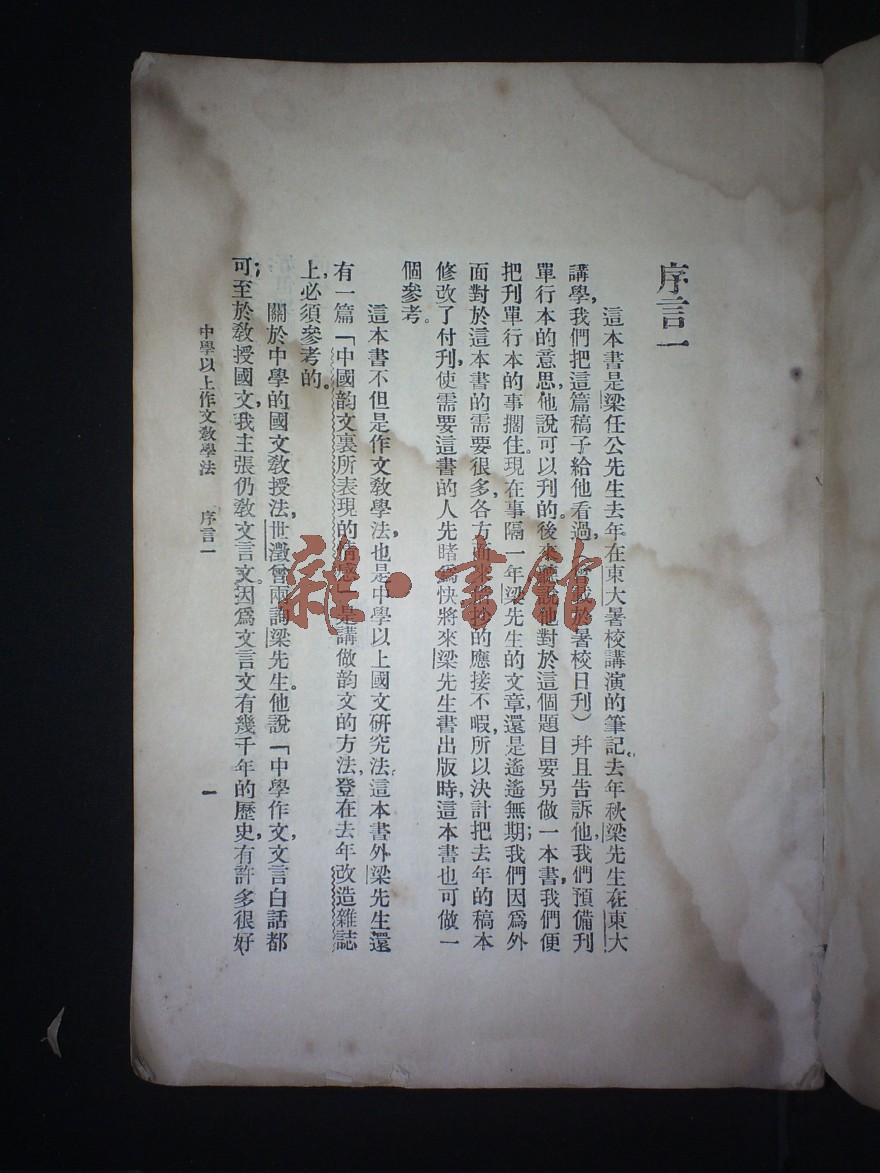 序言一
這本書是梁任公先生去年在東大暑校講演的筆記。去年秋梁先生在東大
講學，我們把這篇稿子給他看過，（曾載於暑校日刊）幷且告訴他，我們預備刊
單行本的意思，他說可以刊的。後來聽說他對於這個題目要另做一本書，我們便
把刊單行本的事擱住。現在事隔一年，梁先生的文章，還是遙遙無期；我們因爲外
面對於這本書的需要很多，各方面來抄的應接不暇，所以決計把去年的稿本
修改了付刊，使需要這書的人先睹爲快，將來梁先生書出版時，這本書也可做一
個參考。
這本書不但是作文敎學法，也是中學以上國文研究法。這本書外，梁先生還
有一篇「中國韵文裏所表現的情感」是講做韵文的方法，登在去年改造雜誌
上，必須參考的。
關於中學的國文敎授法，世瀓曾兩詢梁先生。他說「中學作文，文言白話都
可；至於敎授國文，我主張仍敎文言文。因爲文言文有幾千年的歷史，有許多很好
中學以上作文敎學法 序言一
一
雜·書館